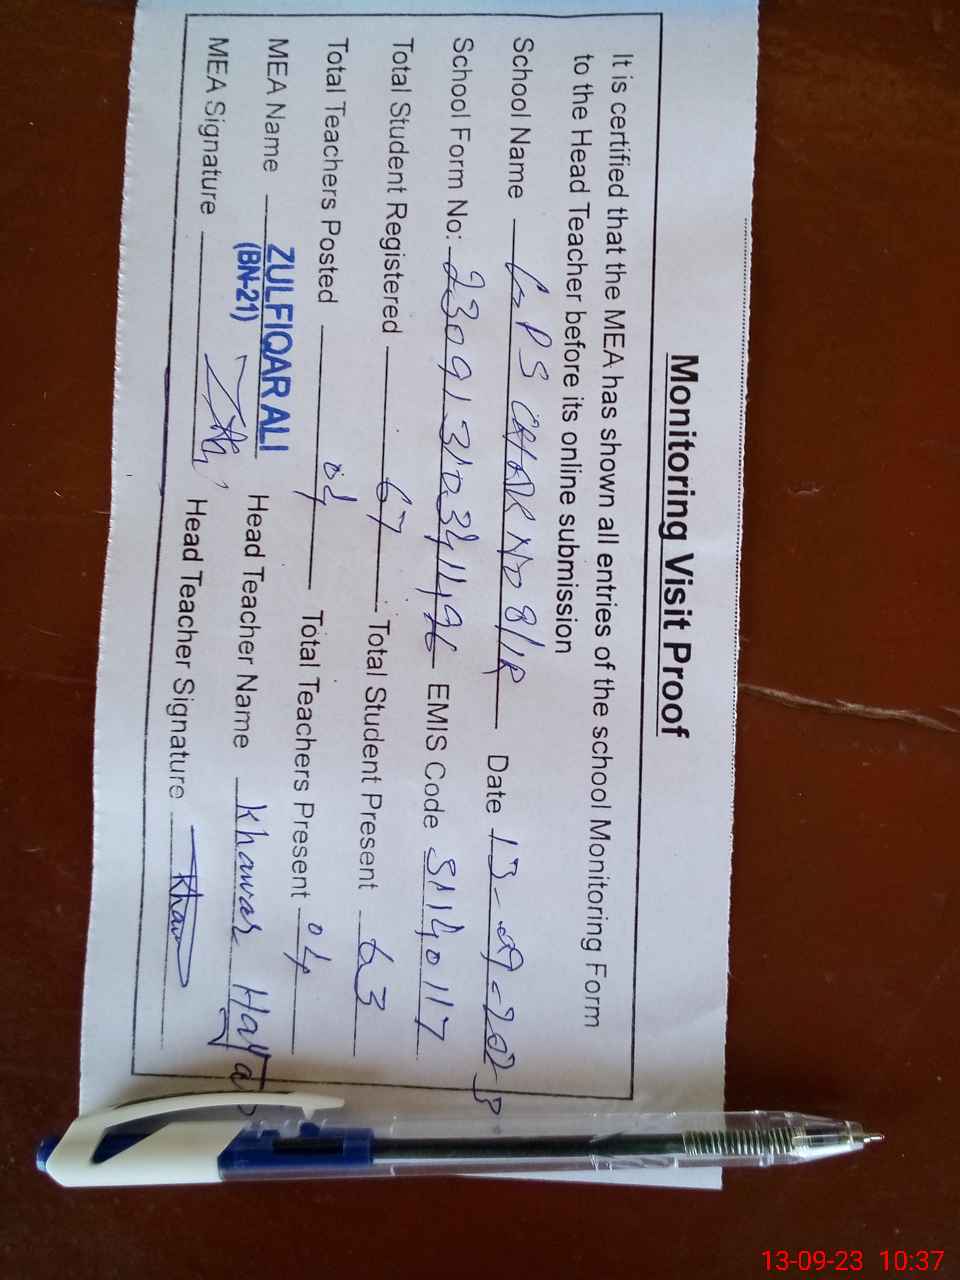 Monitoring Visit Proof
It is certified that the MEA has shown all entries of the school Monitoring Form
to the Head Teacher before its online submission
School Name GPS CHAK NO 8/1R Date 13-09-2023
School Form No: 23091310341196 EMIS Code 31140117
Total Student Registered 67 Total Student Present 63
Total Teachers Posted 04 Total Teachers Present 04
MEA Name ZULFIQAR ALI (BN-21) Head Teacher Name Khawar Hayat
MEA Signature Head Teacher Signature Khawar
13-09-23 10:37